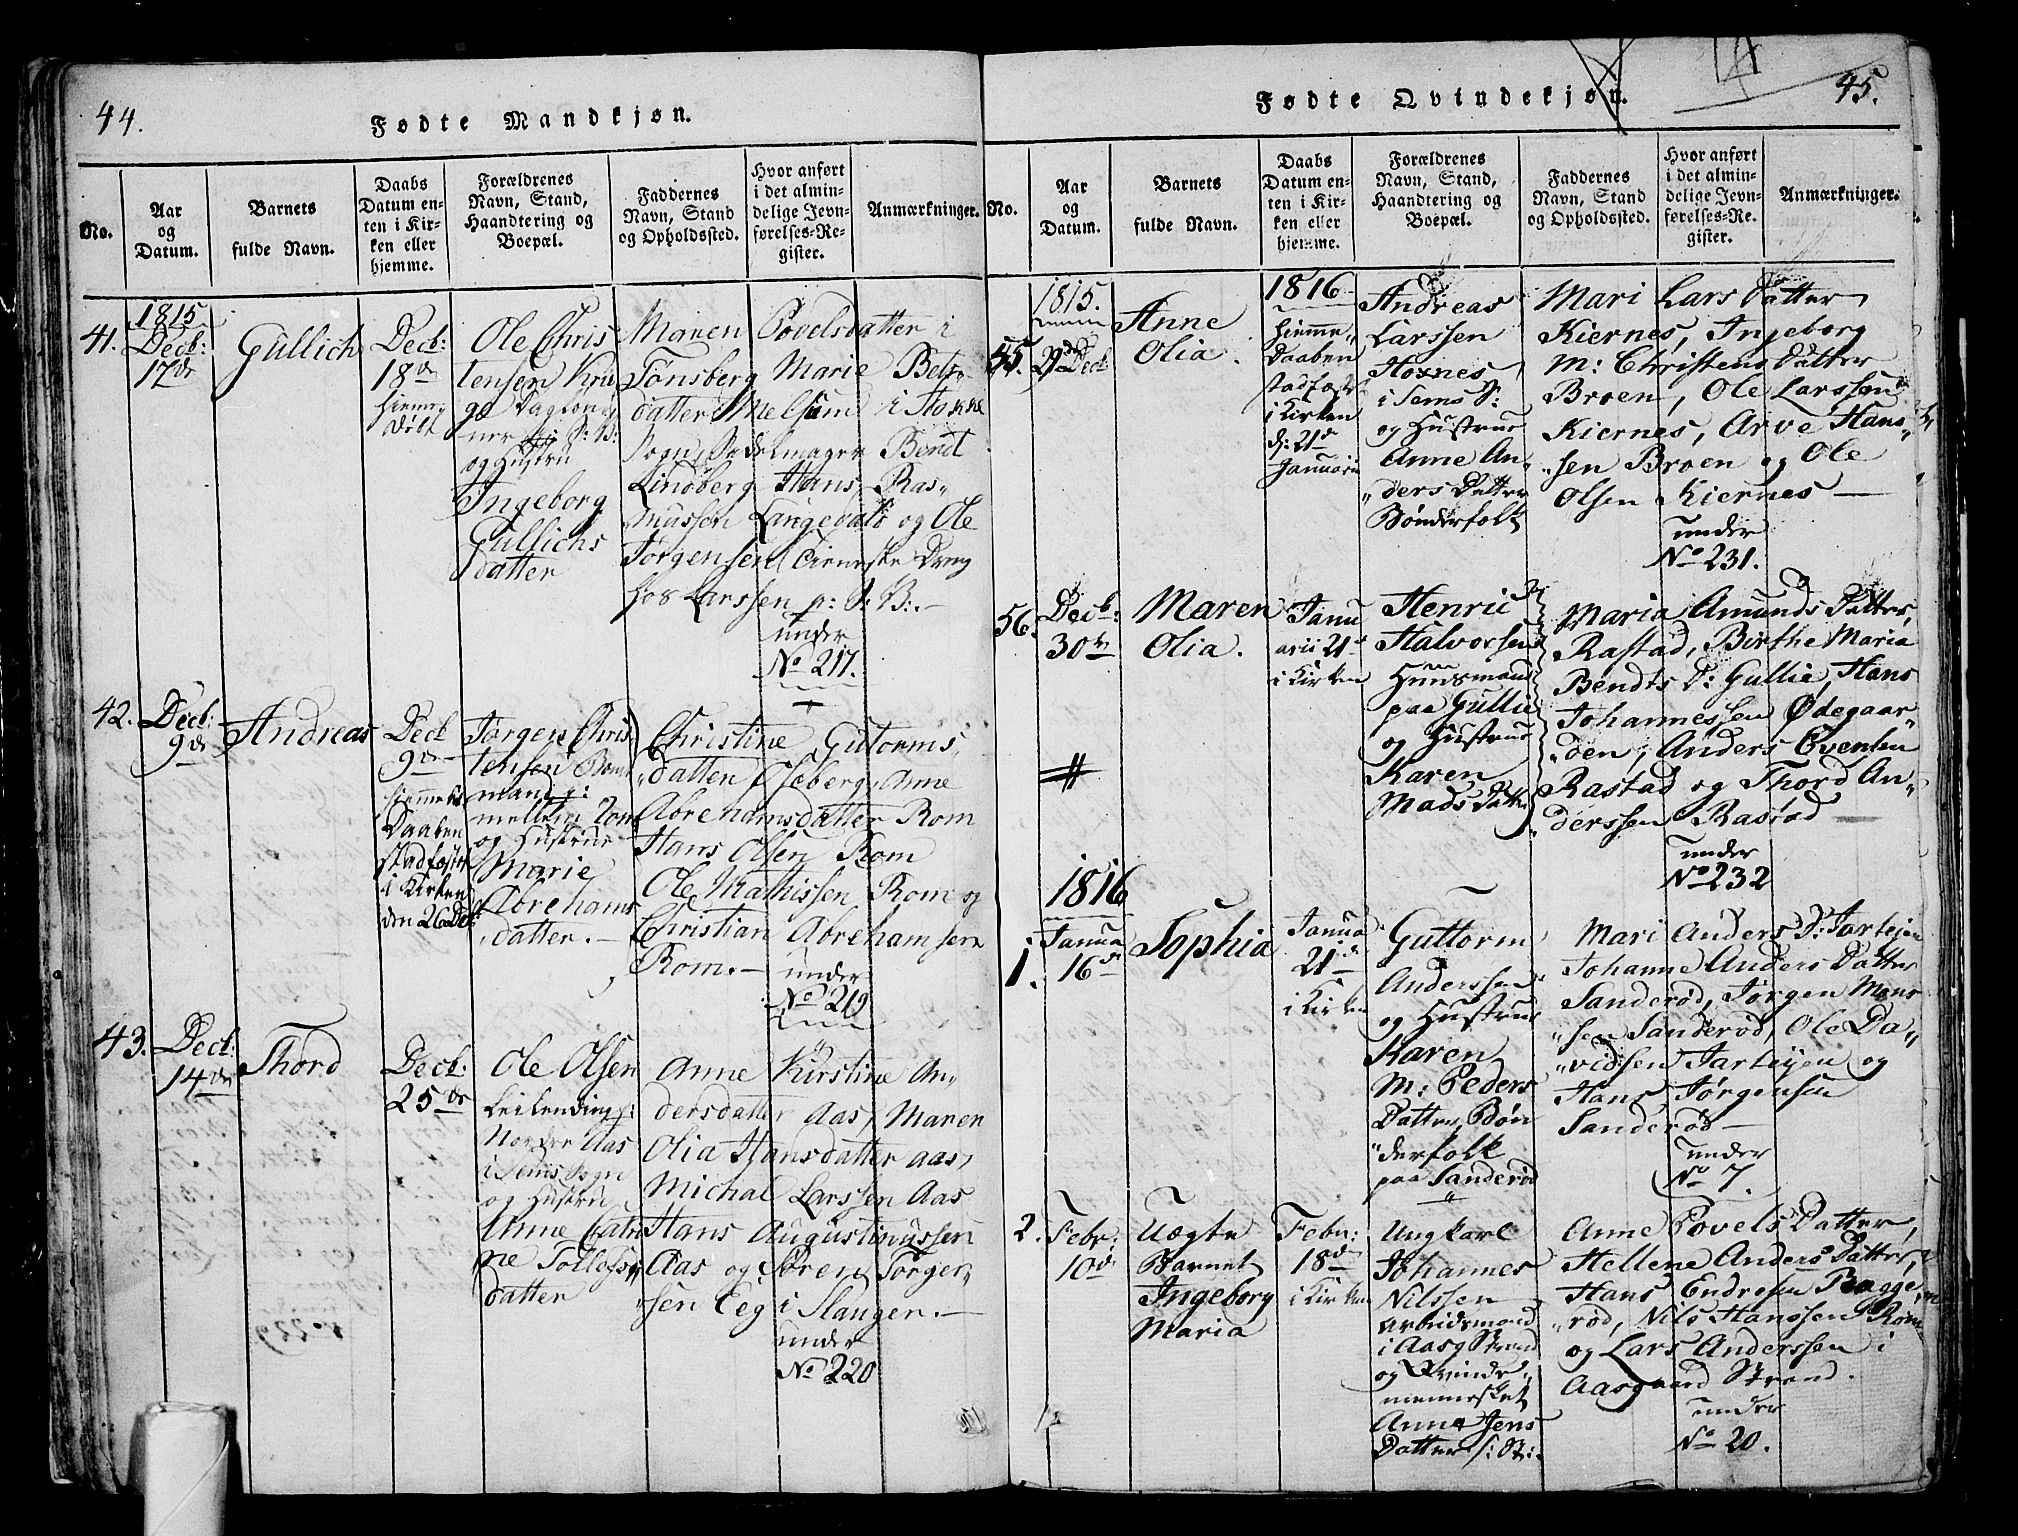 44.
Fødte Mandkjøn.
No.
Aar
og
Datum.
Barnets
fulde Navn.
Daabs
Datum en-
ten i Kir-
ken eller
hjemme.
Forældrenes
Navn, Stand,
Haandtering og
Boepæl.
Faddernes
Navn, Stand
og Opholdssted.
Hvor anført
i det almin-
delige Jevn-
førelses-Re-
gister.
Anmærkninger.
41.
1815
Decb:
17de
Gullich
Decb:
18de
hiemme
døbt
Ole Chris
tensen
og Hustru
Ingeborg
Gullichs
datter
Maren Povelsdatter i
Tønsberg Marie
datter Melsum i Stokke
Sogn, Sadelmager Bend
Lindberg Hans Ras„
mussen og Ole
Jørgensen Tieneste Dreng
hos Larssen p: V: B:.-
under
No 217.
42.
Decb:
9de
Andreas
Decb
9de
hiemme
Daaben
stadfæstet
i Kirken
den 26 Dec:
Jørgen Chris
tensen
mand p:
mellem Rom
og Hustrue
Marie
Abrehams
datter.-
Christine Gutorms„
datter Oseberg, Anne
Abrehamsdatter Rom
Hans Olsen Rom
Ole Mathissen Rom og
Christian Abrehamsen
Rom.-
under
No 219
43.
Decb:
14de
Thord
Decb:
25de
Ole Olsen
Leilending p:
Nordre Aas
i Sems Sogn
og Hustru
Anne Catri
ne Tollefs„
datter
Anne Kirstine An„
dersdatter Aas, Maren
Olia Hansdatter Aas,
Michal Larssen Aas
Hans Augustinussen
Aas og Søren Jørgen„
sen Eeg i Slangen.-
under
No 220
45.
Fødte Qvindekjøn.
No.
Aar
og
Datum.
Barnets
fulde Navn.
Daabs
Datum en-
ten i Kir-
ken eller
hjemme.
Forældrenes
Navn, Stand,
Haandtering og
Boepæl.
Faddernes
Navn, Stand
og Opholdssted.
Hvor anført
i det almin-
delige Jevn-
førelses-Re-
gister.
Anmærkninger.
1815.
Decb
Anne
Olia.
1816
hiemme„
Daaben
stadfæst
i Kirken
d: 21de
Januarii
Andreas
Larssen
i Sems S:
og Hustrue
Anne An„
„ders Datter
Bønderfolk
Mari Lars Datter
Kiernes, Ingeborg
M: Christens Datter
Broen, Ole Larssen
Kiernes, Arve Hans„
„sen Broen og Ole
Olsen Kiernes —
under
No 231.
56.
Decb:
30te
Maren
Olia.
Janu
arii 21de
i Kirken
Henric
Halvorsen
Huusmand
paa Gullie
og Hustrue
Karen
Mads Datter
Maria Amunds Datter,
Rastad, Birthe Maria
Bendts D: Gullie, Hans
Johannessen Ødegaar„
„den, Anders Eventsen
Rastad og Thord An„
„derssen Rastad
under
No 232
1816
1.
Janua
16de
Sophia
Janua
21de
i Kirken
Guttorm
Anderssen
og Hustrue
Karen
M: Peders
Datter, Bøn
„derfolk
paa Sanderød
Mari Anders D: Jarteien
Johanne Anders Datter
Sanderød, Jørgen Mons
„sen Sanderød, Ole Da„
„vidsen Jarteien og
Hans Jørgensen
Sanderød —
under
No 7.
2.
Febr:
10de
Uægte
Barnet
Ingeborg
Maria
Febr:
18de
i Kirken
Ungkarl
Johannes
Nilssen
Arbeidsmand
i Aasg Strand
og Qvinde„
mennesket
Anne Jens
Datter
Anne Povels Datter,
Hellene Anders Datter,
Hans Endresen Bagge„
„rød, Nils Hanssen Rom
og Lars Anderssen i
Aasgaard Strand.
under
No 20.